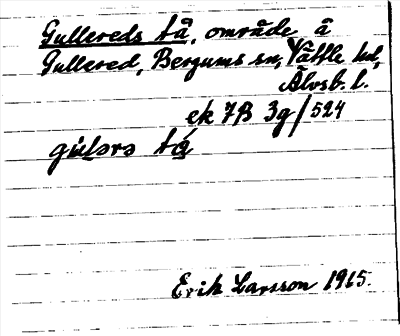 Gullereds tå, område å
Gullered, Bergums sn, Vättle hd,
Älvsb. l.
ek 7B 3g/524
gùlərə tá
Erik Larsson 1915.